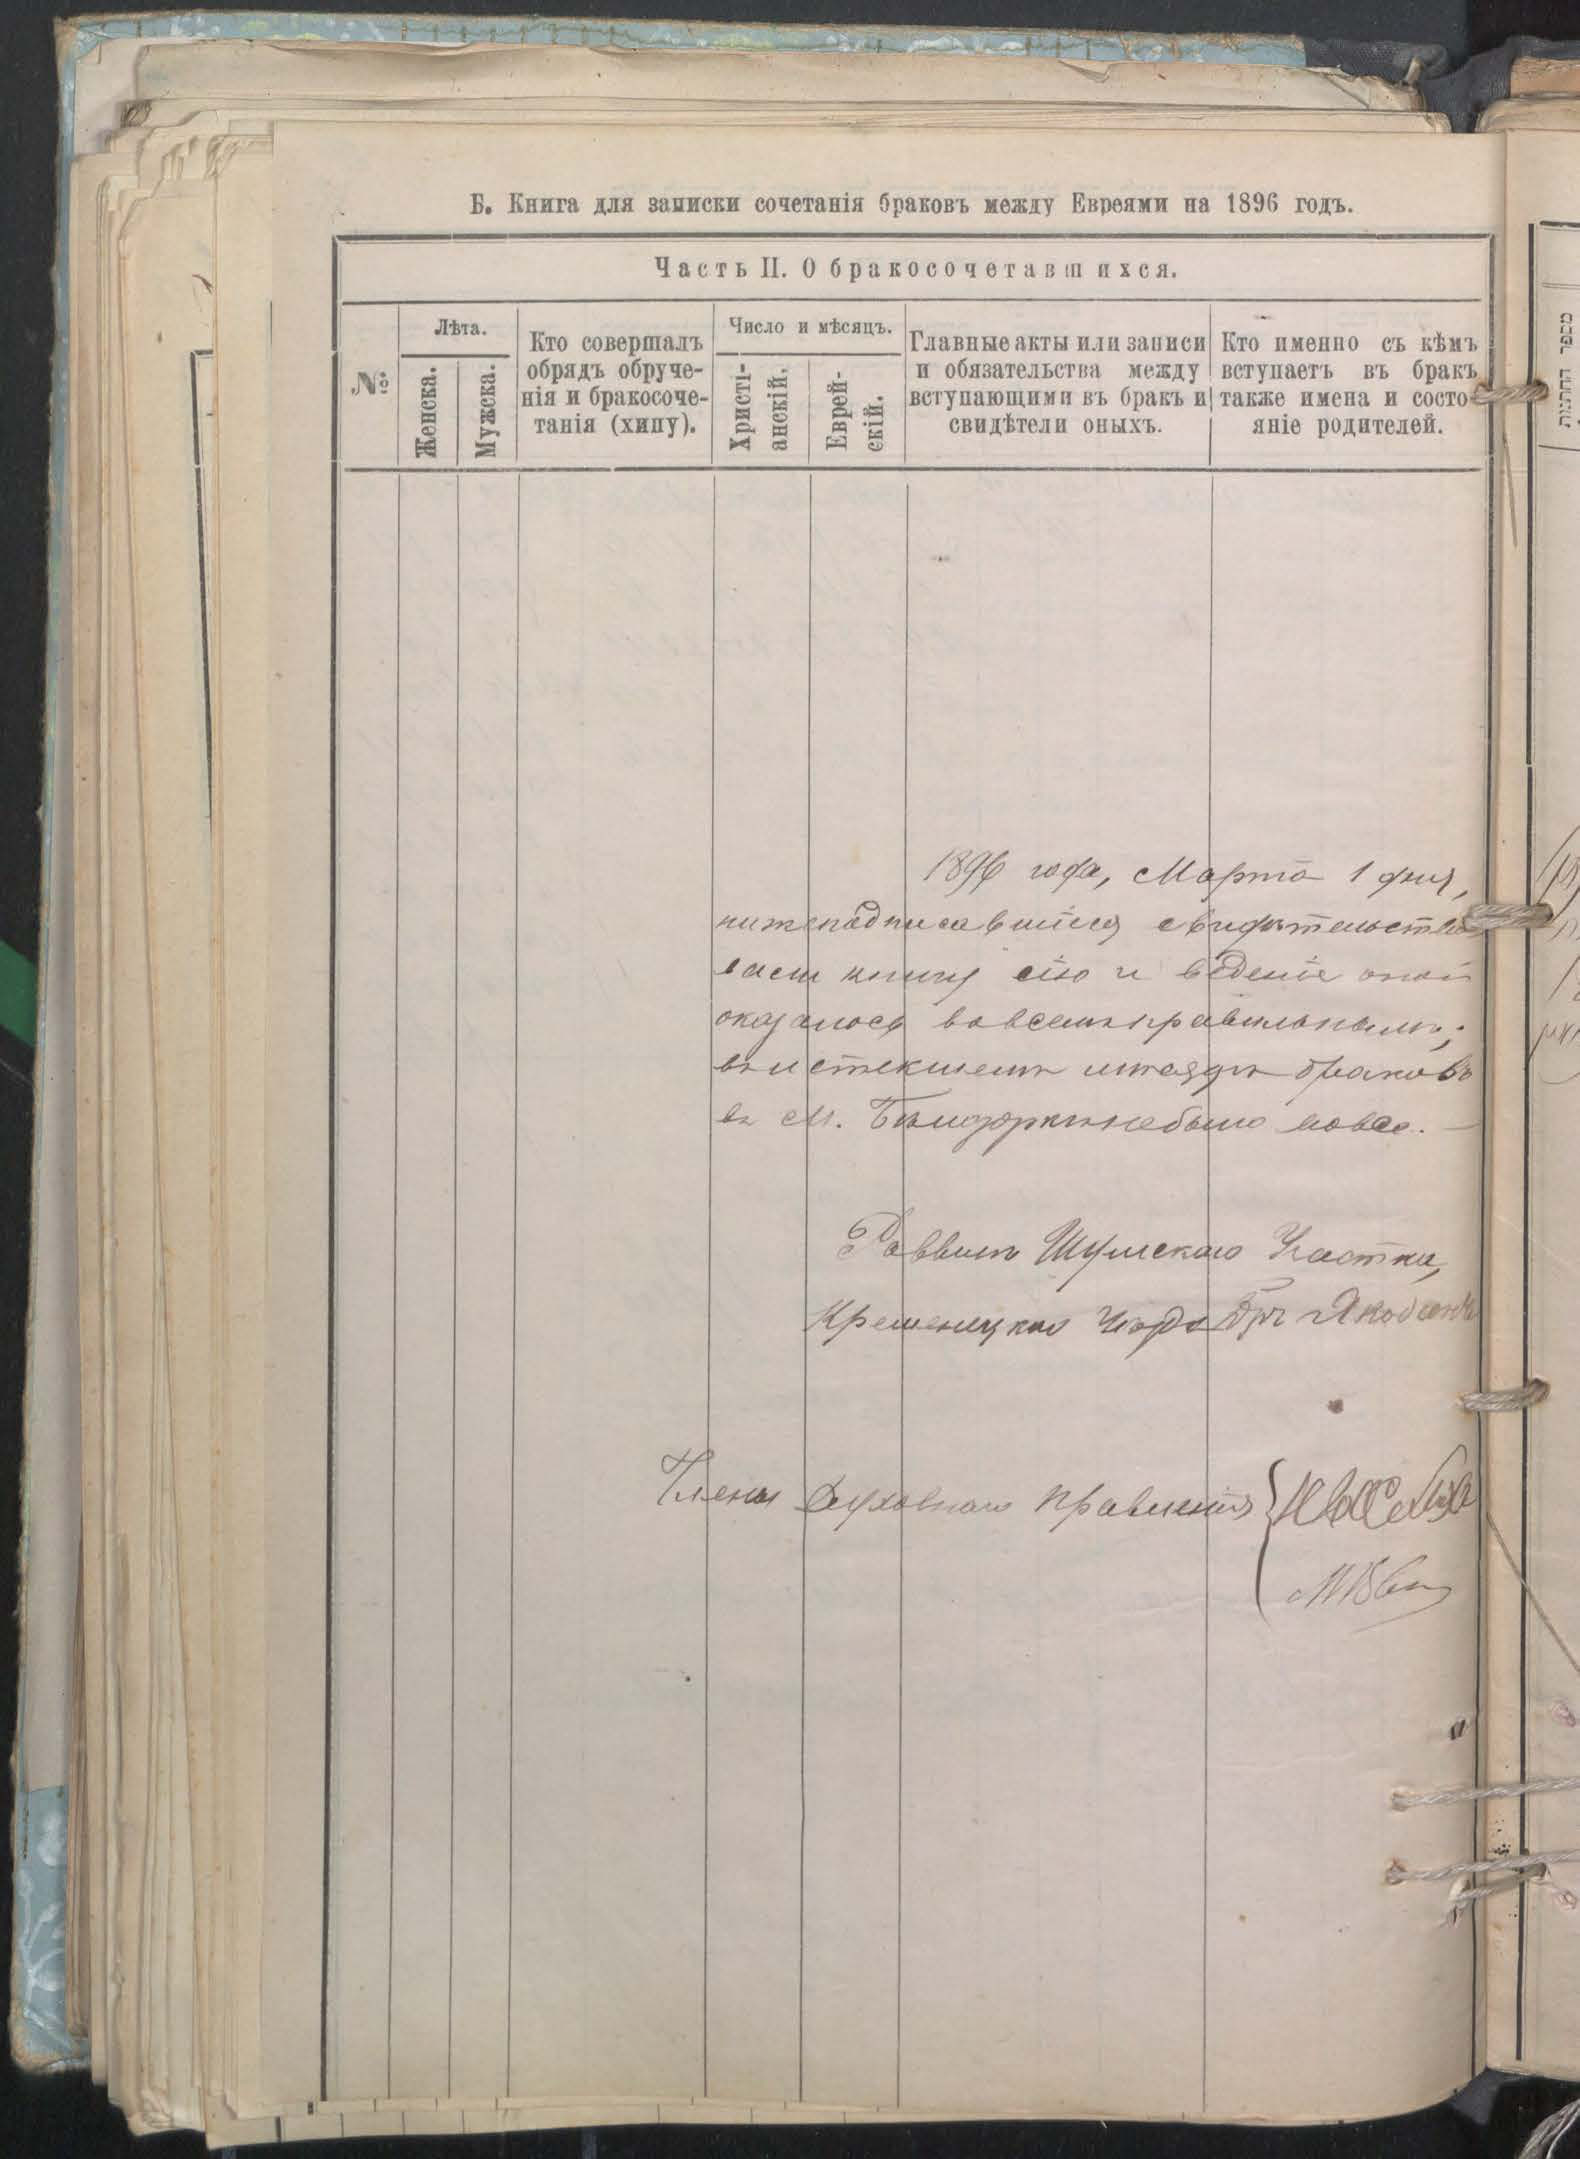 Б. Книга для записки сочетанія браковъ между Евреями на 1896 годъ.
Часть II. О бракосочетавшихся.
№
Лѣта.
Женска.
Мужска.
Кто совершалъ
обрядъ обруче-
нія и бракосоче-
танія (хипу).
Число и мѣсяцъ.
Христі-
анскій.
Еврей-
скій.
Главные акты или записи
и обязательства между
вступающими въ бракъ и
свидѣтели оныхъ.
Кто именно съ кѣмъ
вступаетъ въ бракъ
также имена и состо-
яніе родителей.
1896 года, Марта 1 дня,
нижеподписавшіеся свидѣтельство
вали книгу сію и веденіе оной
оказалось во всемъ правильнымъ;
въ истекшемъ мѣсяцѣ браковъ
въ М. не было вовсе.
Раввинъ Шумскаго Участка,
Кременецкаго уѣзда
Члены Духовнаго Правленія
מספר החתונות